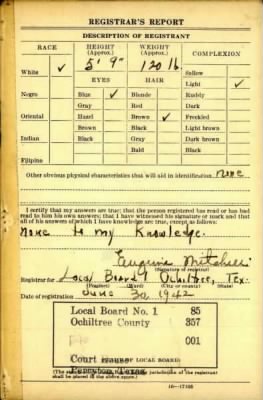 REGISTRAR'S REPORT
DESCRIPTION OF REGISTRANT
RACE HEIGHT (Approx.) WEIGHT (Approx.) COMPLEXION
White ✓ 5' 9" 120 lb. Sallow
EYES HAIR Light ✓
Negro Blue ✓ Blonde Ruddy
Gray Red Dark
Oriental Hazel Brown ✓ Freckled
Brown Black Light brown
Indian Black Gray Dark brown
Bald Black
Filipino
Other obvious physical characteristics that will aid in identification none
I certify that my answers are true; that the person registered has read or has had
read to him his own answers; that I have witnessed his signature or mark and that
all of his answers of which I have knowledge are true, except as follows:
None to my Knowledge.
Eugenia Mitchell
(Signature of registrar)
Registrar for Local Board 1 Ochiltree, Tex.
(Number) (City or county) (State)
Date of registration June 30, 1942
Local Board No. 1 85
Ochiltree County 357
001
Court House
LOCAL BOARD)
Perryton Texas
jurisdiction of the registrant
shall be placed in the above space.)
16—17105